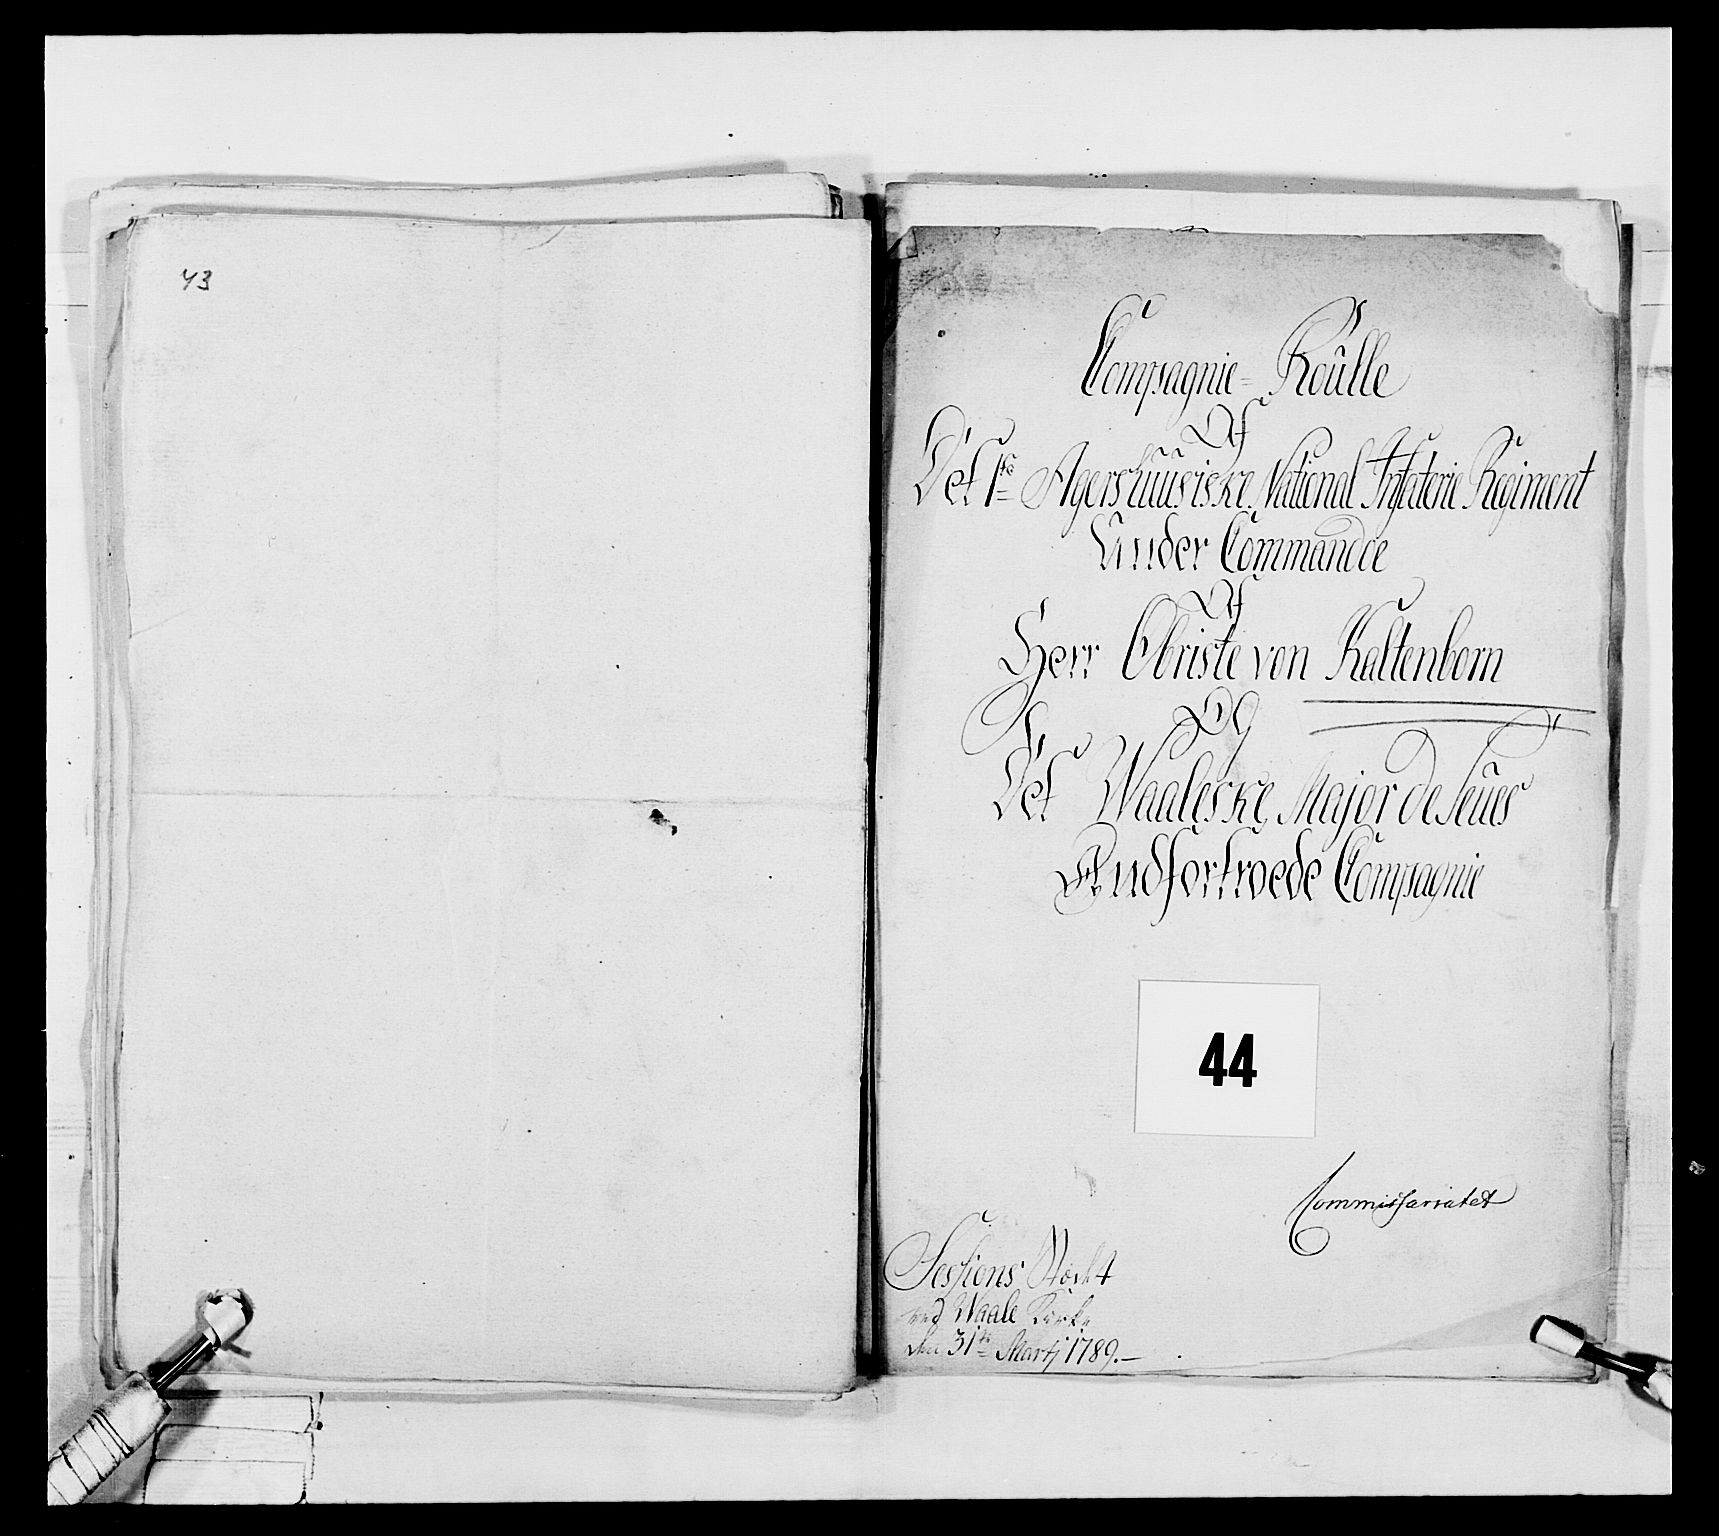 43
Compagnie= Roûlle
Af
Det 1ste Agershuusiske National Infaterie Regiment
Under Commandoe
Af
Herr Obriste von Kaltenborn
Og
Det Waaleske, Major de Seûes
Andfortroede Compagnie
44
Commissariatet
Sessions
ved Waale Kirke
den 31te Martj 1789.—